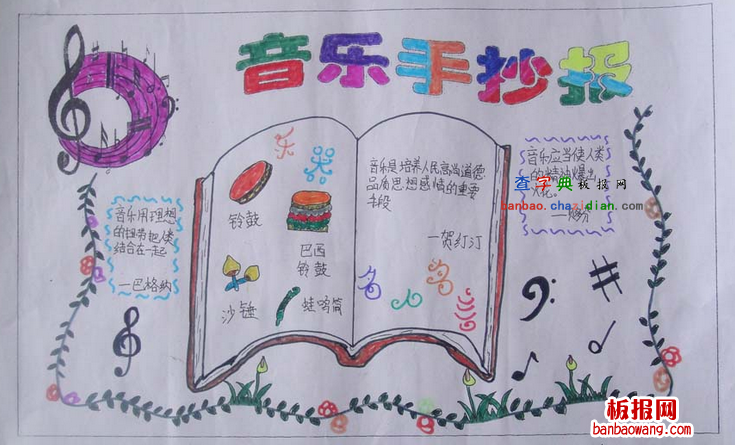 音乐手抄报
音乐用理想
的纽带把人类
结合在一起
一巴格纳
乐器
铃鼓
巴西
铃鼓
沙锤
蛙鸣筒
音乐是培养人民高尚道德
品质思想感情的重要
手段
一贺红汀
音乐应当使人类
的精神爆出
花。
查字典板报网
banbao.chazidian.com
板报网
banbaowang.com